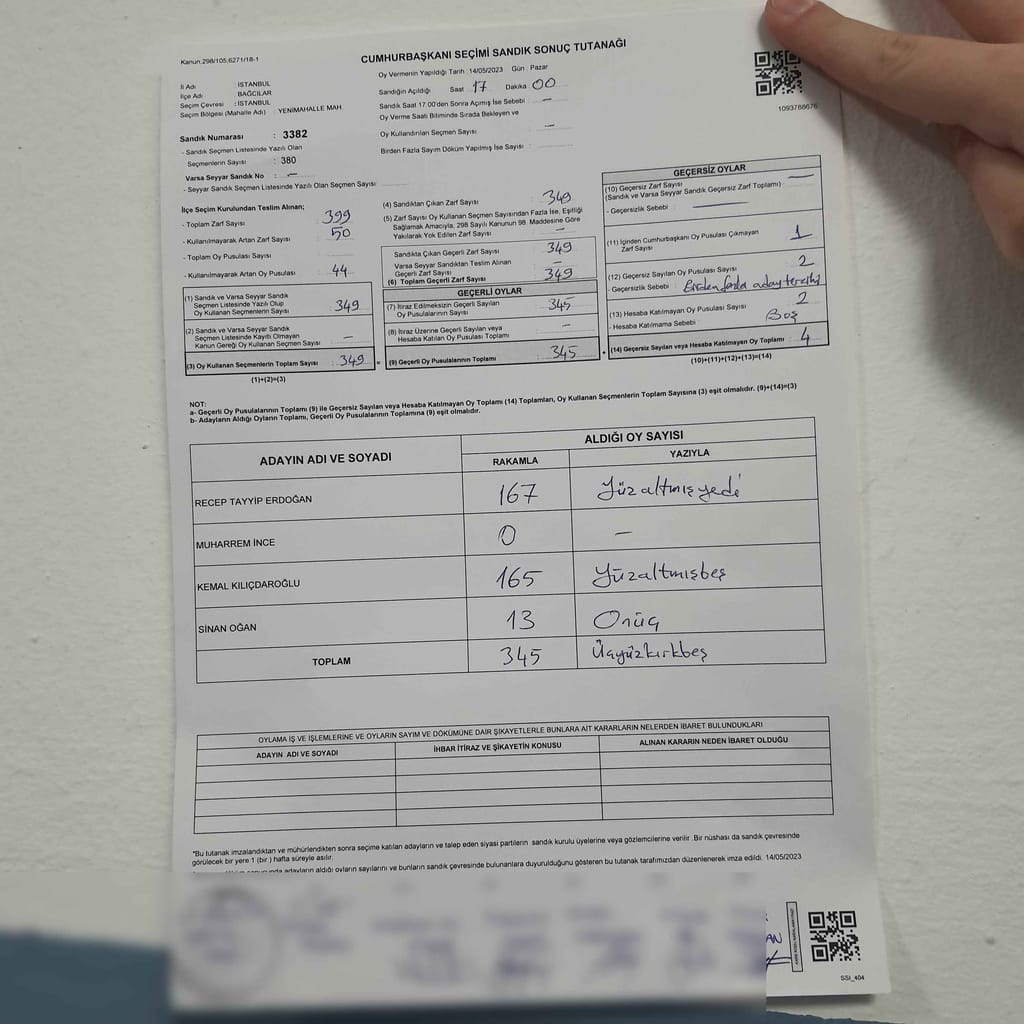 Kanun.298/105,6271/18-1
CUMHURBAŞKANI SEÇİMİ SANDIK SONUÇ TUTANAĞI
Oy Vermenin Yapıldığı Tarih : 14/05/2023 Gün : Pazar
İl Adı : İSTANBUL
İlçe Adı : BAĞCILAR
Seçim Çevresi : İSTANBUL
Seçim Bölgesi (Mahalle Adı) : YENİMAHALLE MAH.
Sandığın Açıldığı Saat 17 Dakika 00
Sandık Saat 17.00'den Sonra Açmış İse Sebebi : —
Oy Verme Saati Bitiminde Sırada Bekleyen ve
Oy Kullandırılan Seçmen Sayısı : —
Birden Fazla Sayım Döküm Yapılmış İse Sayısı :
1093788676
Sandık Numarası : 3382
- Sandık Seçmen Listesinde Yazılı Olan
Seçmenlerin Sayısı : 380
Varsa Seyyar Sandık No : —
- Seyyar Sandık Seçmen Listesinde Yazılı Olan Seçmen Sayısı
İlçe Seçim Kurulundan Teslim Alınan;
- Toplam Zarf Sayısı 399
- Kullanılmayarak Artan Zarf Sayısı 50
- Toplam Oy Pusulası Sayısı
- Kullanılmayarak Artan Oy Pusulası 44
(1) Sandık ve Varsa Seyyar Sandık
Seçmen Listesinde Yazılı Olup
Oy Kullanan Seçmenlerin Sayısı 349
(2) Sandık ve Varsa Seyyar Sandık
Seçmen Listesinde Kayıtlı Olmayan
Kanun Gereği Oy Kullanan Seçmen Sayısı —
(3) Oy Kullanan Seçmenlerin Toplam Sayısı 349 =
(1)+(2)=(3)
(4) Sandıktan Çıkan Zarf Sayısı 349
(5) Zarf Sayısı Oy Kullanan Seçmen Sayısından Fazla İse, Eşitliği
Sağlamak Amacıyla, 298 Sayılı Kanunun 98. Maddesine Göre
Yakılarak Yok Edilen Zarf Sayısı —
Sandıkta Çıkan Geçerli Zarf Sayısı 349
Varsa Seyyar Sandıktan Teslim Alınan
Geçerli Zarf Sayısı
(6) Toplam Geçerli Zarf Sayısı 349
GEÇERLİ OYLAR
(7) İtiraz Edilmeksizin Geçerli Sayılan
Oy Pusulalarının Sayısı 345
(8) İtiraz Üzerine Geçerli Sayılan veya
Hesaba Katılan Oy Pusulası Toplamı —
(9) Geçerli Oy Pusulalarının Toplamı 345 +
GEÇERSİZ OYLAR
(10) Geçersiz Zarf Sayısı —
(Sandık ve Varsa Seyyar Sandık Geçersiz Zarf Toplamı)
- Geçersizlik Sebebi : —
(11) İçinden Cumhurbaşkanı Oy Pusulası Çıkmayan
Zarf Sayısı 1
(12) Geçersiz Sayılan Oy Pusulası Sayısı 2
- Geçersizlik Sebebi : Birden fazla aday tercihi
(13) Hesaba Katılmayan Oy Pusulası Sayısı 2
- Hesaba Katılmama Sebebi Boş
(14) Geçersiz Sayılan veya Hesaba Katılmayan Oy Toplamı 4
(10)+(11)+(12)+(13)=(14)
NOT:
a- Geçerli Oy Pusulalarının Toplamı (9) ile Geçersiz Sayılan veya Hesaba Katılmayan Oy Toplamı (14) Toplamları, Oy Kullanan Seçmenlerin Toplam Sayısına (3) eşit olmalıdır. (9)+(14)=(3)
b- Adayların Aldığı Oyların Toplamı, Geçerli Oy Pusulalarının Toplamına (9) eşit olmalıdır.
ADAYIN ADI VE SOYADI ALDIĞI OY SAYISI
RAKAMLA YAZIYLA
RECEP TAYYİP ERDOĞAN 167 Yüzaltmışyedi
MUHARREM İNCE 0 —
KEMAL KILIÇDAROĞLU 165 Yüzaltmışbeş
SİNAN OĞAN 13 Onüç
TOPLAM 345 Üçyüzkırkbeş
OYLAMA İŞ VE İŞLEMLERİNE VE OYLARIN SAYIM VE DÖKÜMÜNE DAİR ŞİKAYETLERLE BUNLARA AİT KARARLARIN NELERDEN İBARET BULUNDUKLARI
ADAYIN ADI VE SOYADI İHBAR İTİRAZ VE ŞİKAYETİN KONUSU ALINAN KARARIN NEDEN İBARET OLDUĞU
*Bu tutanak imzalandıktan ve mühürlendikten sonra seçime katılan adayların ve talep eden siyasi partilerin sandık kurulu üyelerine veya gözlemcilerine verilir .Bir nüshası da sandık çevresinde
görülecek bir yere 1 (bir ) hafta süreyle asılır.
adayların aldığı oyların sayılarını ve bunların sandık çevresinde bulunanlara duyurulduğunu gösteren bu tutanak tarafımızdan düzenlenerek imza edildi. 14/05/2023
SSI_404